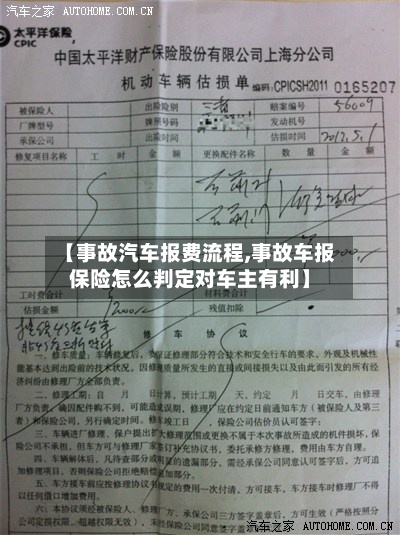 汽车之家 AUTOHOME.COM.CN
太平洋保险
CPIC
中国太平洋财产保险股份有限公司上海分公司
机动车辆估损单 编码:CPICSH2011 0165207
被保险人 出险险别 三者 赔案编号 56009
厂牌型号 牌照号码 发动机号
承保公司 出险时间 估损时间 2012.5.1
修复项目名称 工时 金额 更换配件名称 数量 金额
【事故汽车报费流程,事故车报
保险怎么判定对车主有利】
工时费合计 材料费合计
估损金额 残值扣除
修车协议
一、修车质量:车辆修复后,保证修理部分符合技术和安全行车的要求,外观及机械性
能基本达到出险前的技术状况,因修理质量所发生的直接或间接损失以及由此而引发的所有经
济纠纷由修理厂方全部负责。
二、修理工期:自 月 日 计算,预计工期 天,约定 月 日交车,由修理
厂方负责。确因配件购不到,可能造成误期,修理厂应在约定日前通知车方(被保险人及第三
者)和保险公司,另行确定时间。修车竣工日, 保险公司估价员认可签字:
三、车辆进厂修理、保户提出扩大修理范围或更换不属于本次事故所造成的机件损坏,保
险公司不承担,但车方可与修理厂家签订补充协议书,委托承修方修理,费用由车方自理。
四、车辆解体后,凡待查部分或有的遗漏部分,需经承保公司同意认可签字后,方可追
加修理项目,否则保险公司拒绝赔偿追加。
五、车方接车前应按修理协议书规定的费用一次付清,方可接车,车方接车时修理厂不得
以任何借口增加费用。
六、本协议须经被保险人、修理厂方、承保公司三方签字盖章后,方可生效(严格按照分
公司定损权限,超越权限无效),未经保险公司同意签字盖章
汽车之家 AUTOHOME.COM.CN